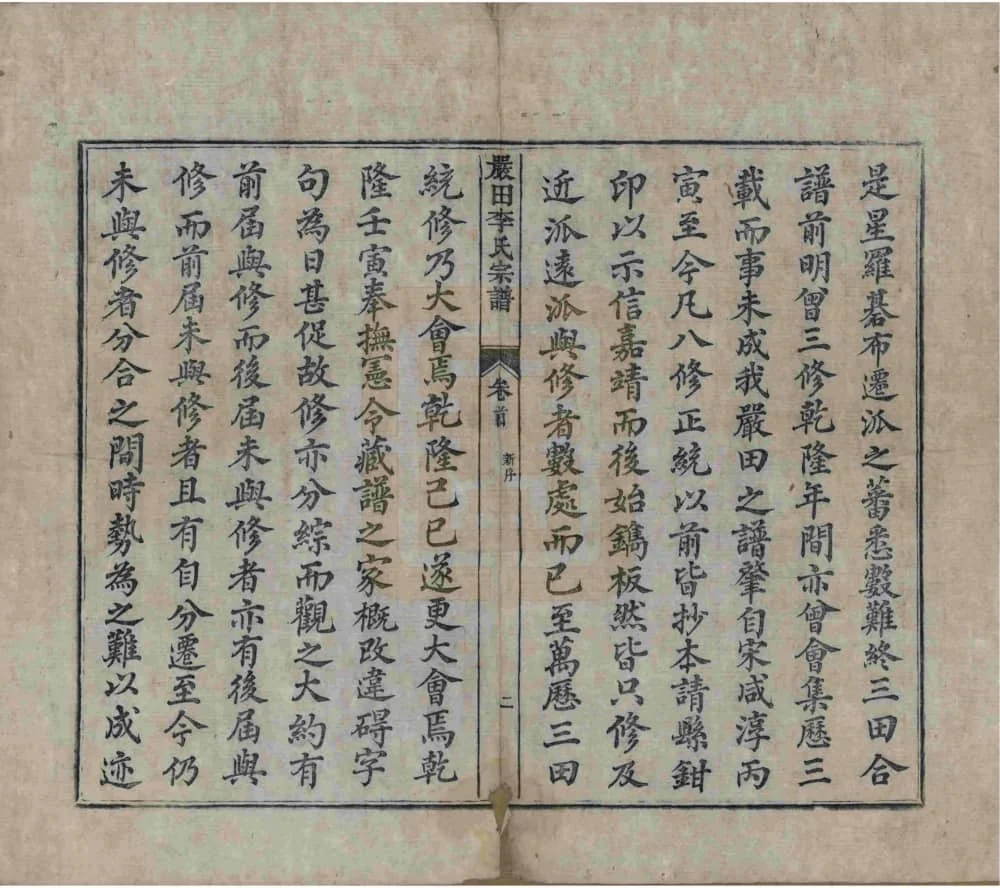 是星羅碁布遷派之蕃悉數難終三田合
譜前明曾三修乾隆年間亦曾會集歷三
載而事未成我嚴田之譜肇自宋咸淳丙
寅至今凡八修正統以前皆抄本請縣鉗
印以示信嘉靖而後始鐫板然皆只修及
近派遠派與修者數處而已至萬歷三田
嚴田李氏宗譜
卷首
新序
二
統修乃大會焉乾隆己巳遂更大會焉乾
隆壬寅奉撫憲令藏譜之家概改違碍字
句為日甚促故修亦分綜而觀之大約有
前届與修而後届未與修者亦有後届與
修而前届未與修者且有自分遷至今仍
未與修者分合之間時勢為之難以成迹